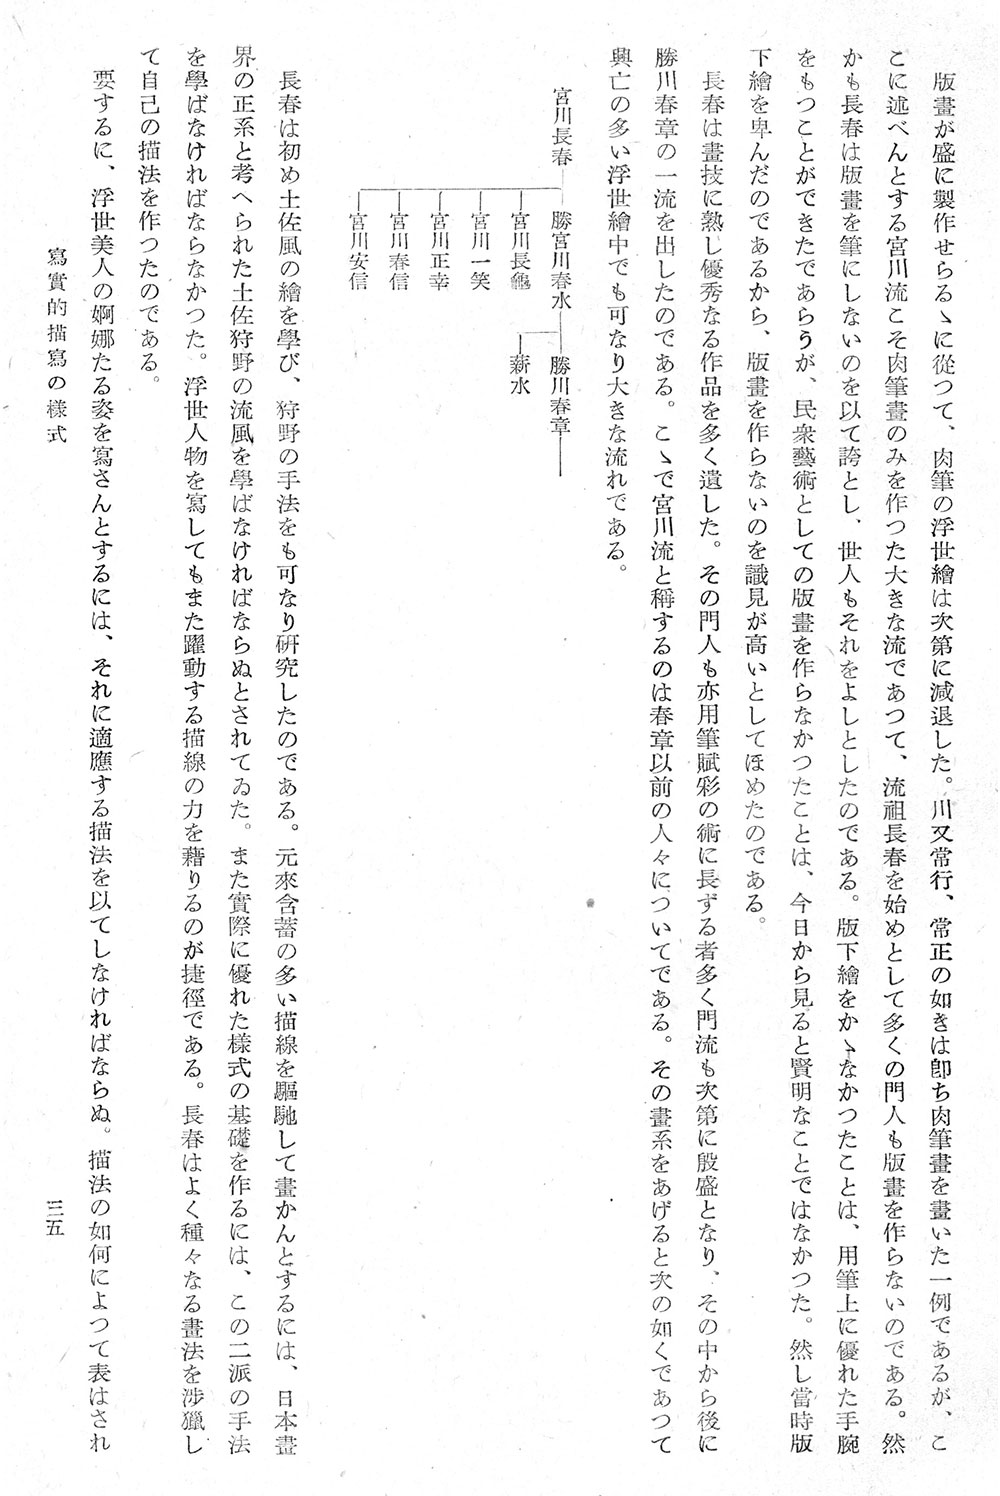 版畫が盛に製作せらるゝに從つて、肉筆の浮世繪は次第に減退した。川又常行、常正の如きは卽ち肉筆畫を畫いた一例であるが、こ
こに述べんとする宮川流こそ肉筆畫のみを作つた大きな流であつて、流祖長春を始めとして多くの門人も版畫を作らないのである。然
かも長春は版畫を筆にしないのを以て誇とし、世人もそれをよしとしたのである。版下繪をかゝなかつたことは、用筆上に優れた手腕
をもつことができたであらうが、民衆藝術としての版畫を作らなかつたことは、今日から見ると賢明なことではなかつた。然し當時版
下繪を卑んだのであるから、版畫を作らないのを識見が高いとしてほめたのである。
長春は畫技に熟し優秀なる作品を多く遺した。その門人も亦用筆賦彩の術に長ずる者多く門流も次第に殷盛となり、その中から後に
勝川春章の一流を出したのである。こゝで宮川流と稱するのは春章以前の人々についてである。その畫系をあげると次の如くであつて
興亡の多い浮世繪中でも可なり大きな流れである。
宮川長春
勝宮川春水
勝川春章
薪水
宮川長龜
宮川一笑
宮川正幸
宮川春信
宮川安信
長春は初め土佐風の繪を學び、狩野の手法をも可なり硏究したのである。元來含蓄の多い描線を驅馳して畫かんとするには、日本畫
界の正系と考へられた土佐狩野の流風を學ばなければならぬとされてゐた。また實際に優れた樣式の基礎を作るには、この二派の手法
を學ばなければならなかつた。浮世人物を寫してもまた躍動する描線の力を藉りるのが捷徑である。長春はよく種々なる畫法を涉獵し
て自己の描法を作つたのである。
要するに、浮世美人の婀娜たる姿を寫さんとするには、それに適應する描法を以てしなければならぬ。描法の如何によつて表はされ
寫實的描寫の樣式
三五